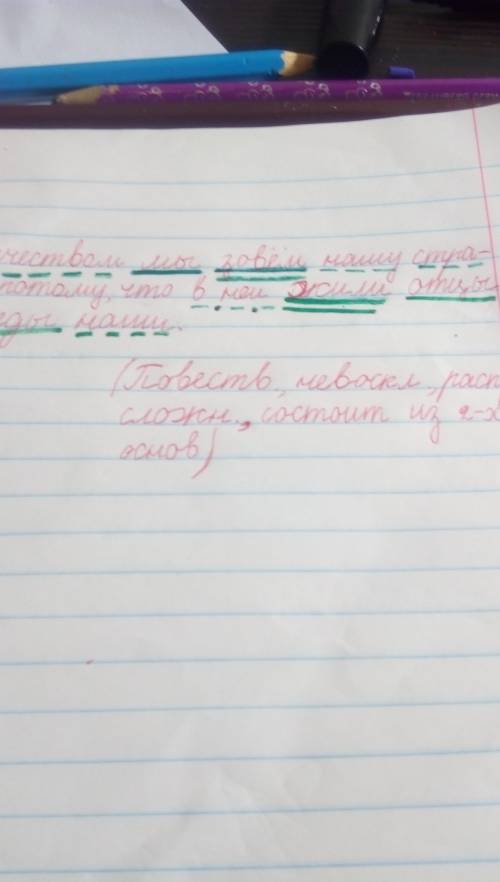 чеством мы зовём нашу стра-
потому, что в ней жили отцы
еды наши.
(Повеств., невоскл., расп
сложн., состоит из 2-х
основ)